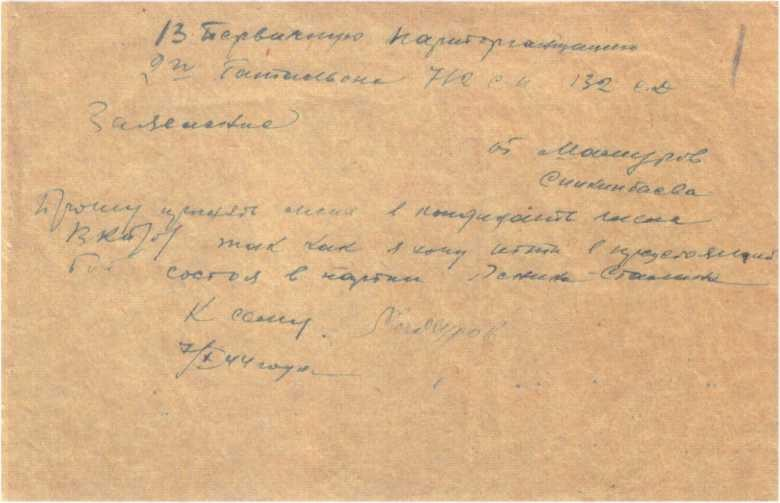 В Первичную Парторганизацию
2го Батальона 712 с.п 132 с.д
Заявление
от Машуров
Прошу принять меня в кандидаты члена
ВКП(б) так как я хочу итти в предстоящий
бой состоя в партии Ленина-Сталина
К сему Машуров
7/X 44 года